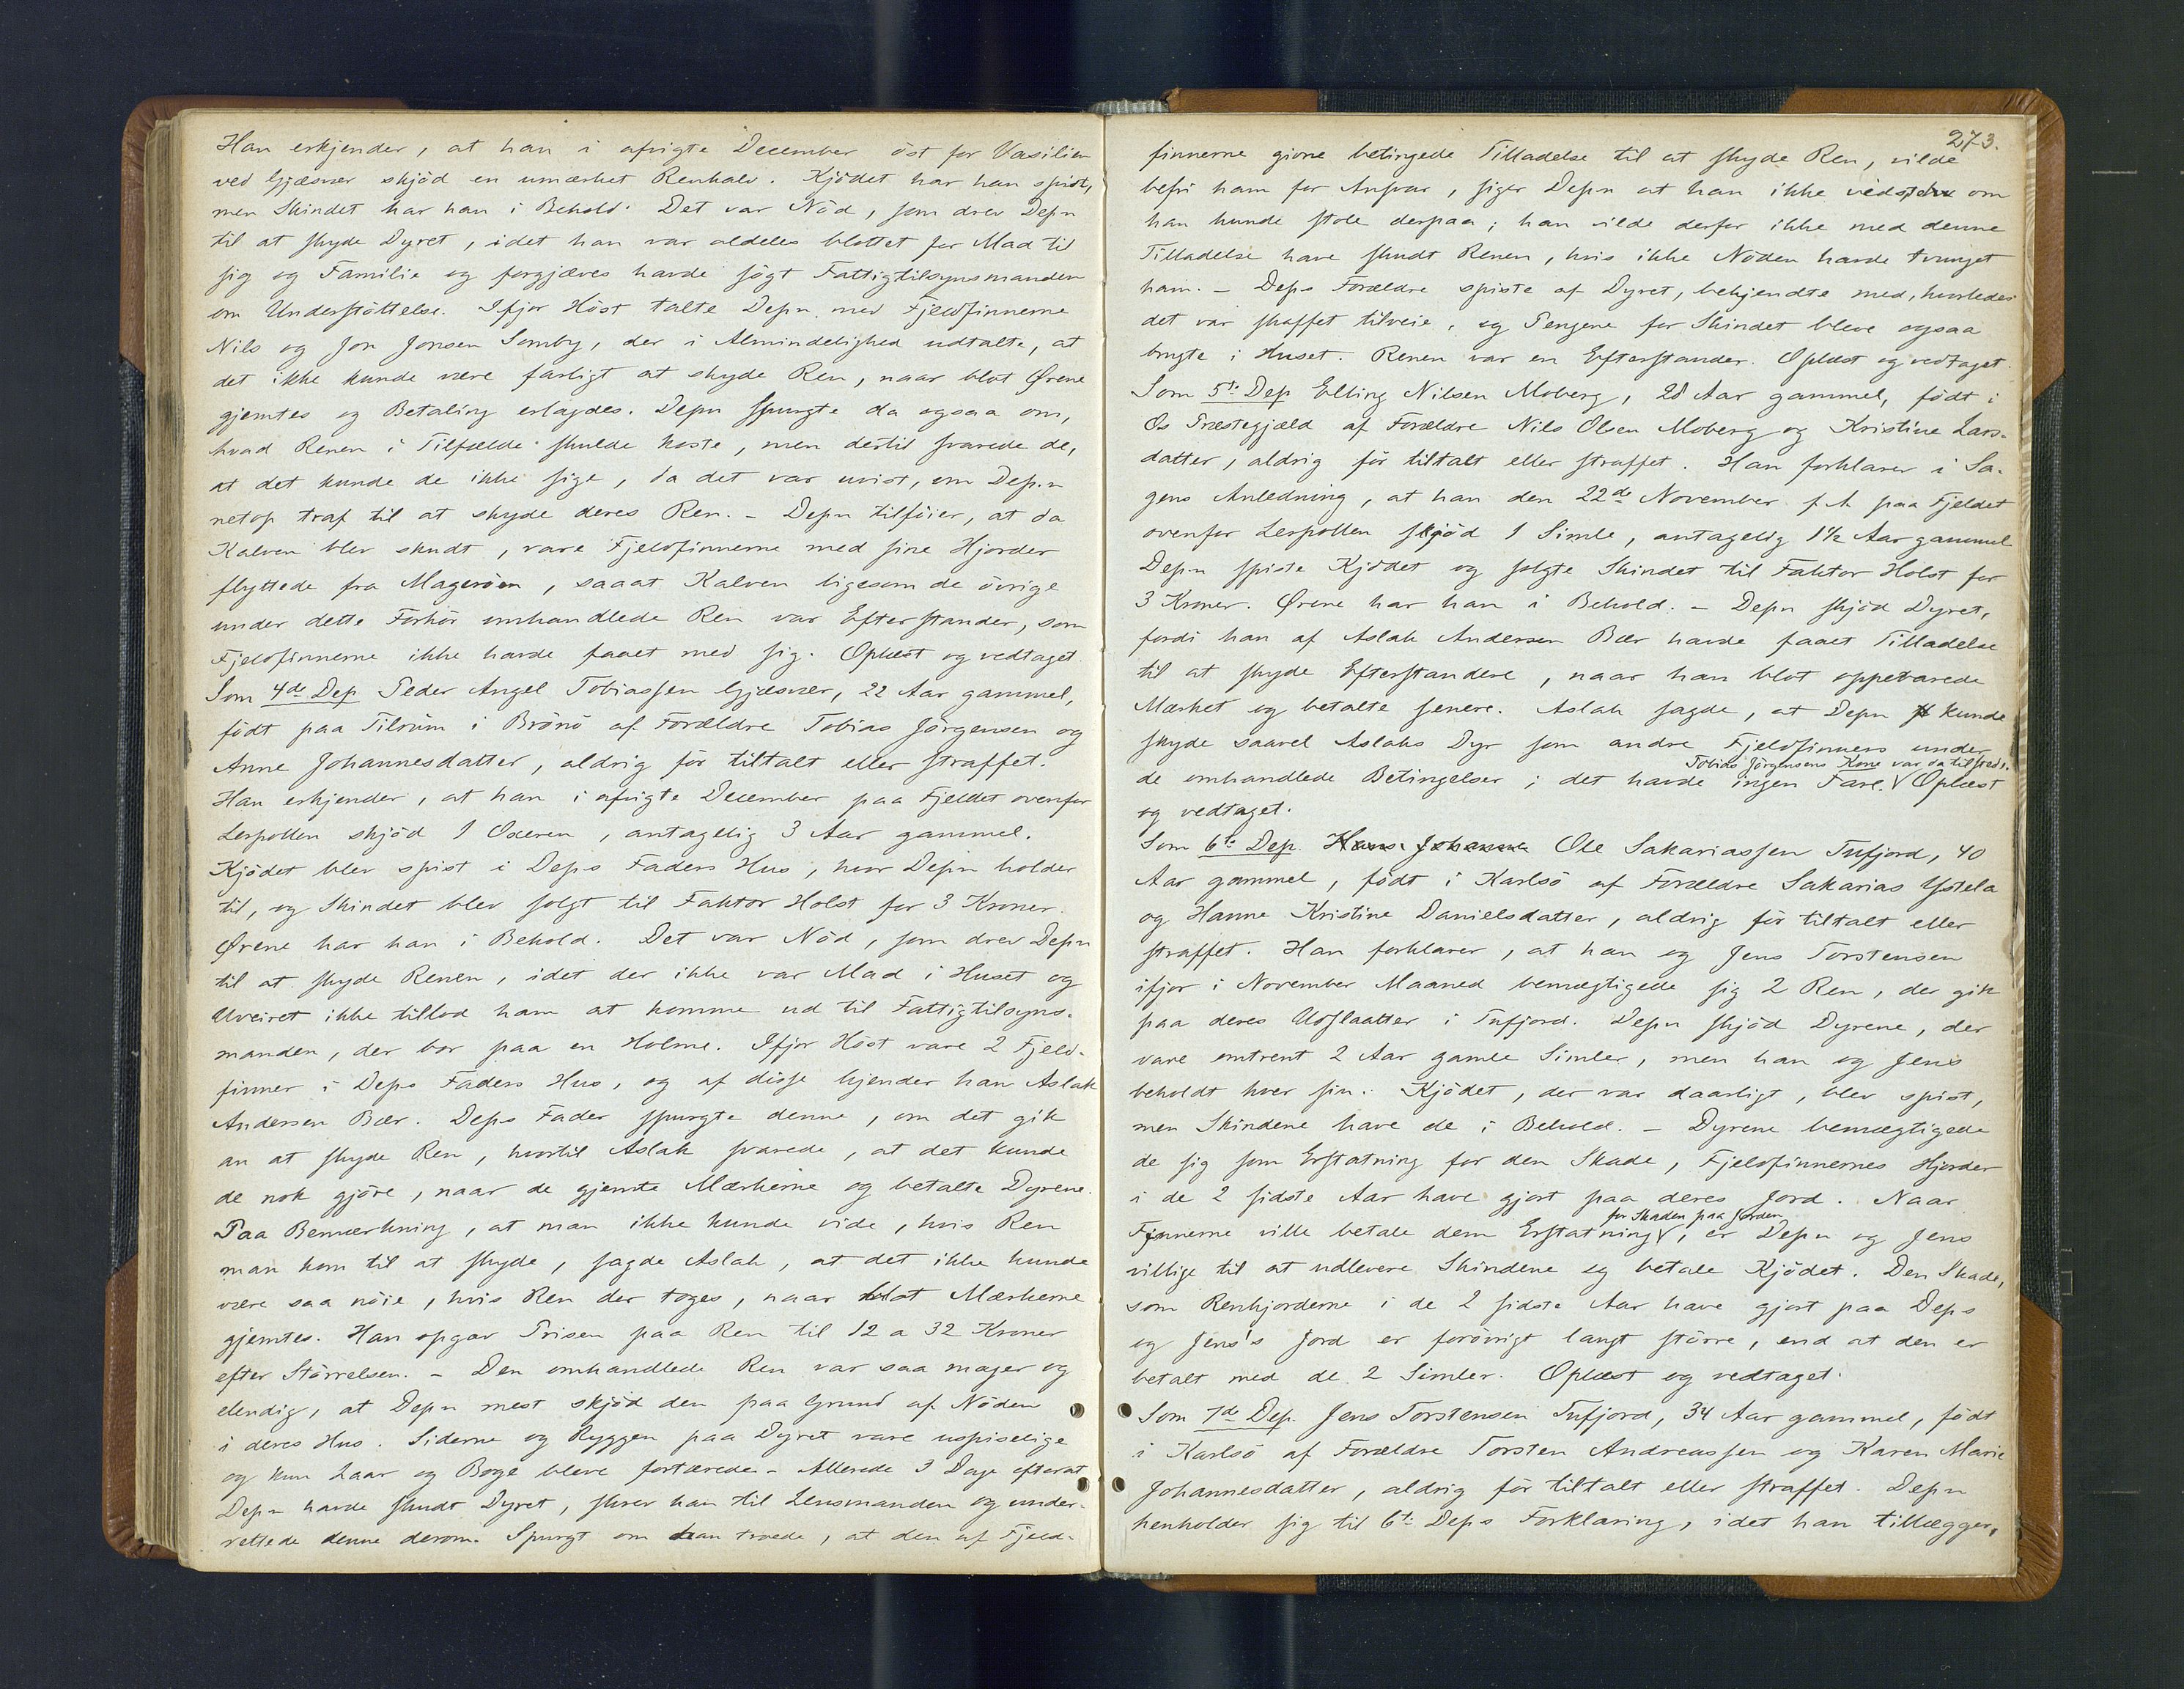 Han erkjender, at han i afvigte December öst for Vasilien
ved Gjæsvær skjöd en umærket Renkalv. Kjödet har han spist,
men Skindet har han i Behold. Det var Nöd, som drev Depn
til at skyde Dyret, idet han var aldeles blottet for Mad til
sig og Familie og forgjæves havde sögt Fattigtilsynsmanden
om Understöttelse. Ifjor Höst talte Depn. med Fjeldfinnerne
Nils og Jon Jonsen Somby, der i Almindelighed udtalte, at
det ikke kunde være farligt at skyde Ren, naar blot Ørene
gjemtes og Betaling erlagdes. Depn spurgte da ogsaa om,
hvad Renen i Tilfælde skulde koste, men dertil svarede de,
at det kunde de ikke sige, da det var uvist, om Dep.n
netop traf til at skyde deres Ren. – Depn tilföier, at da
Kalven blev skudt, vare Fjeldfinnerne med sine Hjorder
flyttede fra Mageröen, saaat Kalven ligesom de övrige
under dette Forhör omhandlede Ren var Efterstander, som
Fjeldfinnerne ikke havde faaet med sig. Oplæst og vedtaget.
Som 4de Dep Peder Angel Tobiassen Gjæsvær, 22 Aar gammel,
födt paa Tilrum i Brönö af Forældre Tobias Jörgensen og
Anne Johannesdatter, aldrig för tiltalt eller straffet.
Han erkjender, at han i afvigte December paa Fjeldet ovenfor
Lerpollen skjöd 1 Oxeren, antagelig 3 Aar gammel.
Kjödet blev spist i Deps Faders Hus, hvor Depn holder
til, og Skindet blev solgt til Faktor Holst for 3 Kroner.
Ørene har han i Behold. Det var Nöd, som drev Depn
til at skyde Renen, idet der ikke var Mad i Huset og
Uveiret ikke tillod ham at komme ud til Fattigtilsyns-
manden, der bor paa en Holme. Ifjor Höst vare 2 Fjeld-
finner i Deps Faders Hus, og af disse kjender han Aslak
Andersen Bær. Deps Fader spurgte denne, om det gik
an at skyde Ren, hvortil Aslak svarede, at det kunde
de nok gjöre, naar de gjemte Mærkerne og betalte Dyrene.
Paa Bemærkning, at man ikke kunde vide, hvis Ren
man kom til at skyde, sagde Aslak, at det ikke kunde
være saa nöie, hvis Ren der toges, naar blot Mærkerne
gjemtes. Han opgav Prisen paa Ren til 12 a 32 Kroner
efter Störrelsen. – Den omhandlede Ren var saa mager og
elendig, at Depn mest skjöd den paa Grund af Nöden
i deres Hus. Siderne og Ryggen paa Dyret vare uspiselige
og kun Laar og Boge bleve fortærede. – Allerede 3 Dage efterat
Depn havde skudt Dyret, skrev han til Lensmanden og under-
rettede denne derom. Spurgt om han troede, at den af Fjeld-
273.
finnerne givne betingede Tilladelse til at skyde Ren, vilde
befri ham for Ansvar, siger Depn at han ikke vidste om
han kunde stole derpaa; han vilde derfor ikke med denne
Tilladelse have skudt Renen, hvis ikke Nöden havde tvunget
ham. – Deps Forældre spiste af Dyret, bekjendte med, hvorledes
det var skaffet tilveie, og Pengene for Skindet bleve ogsaa
brugte i Huset. Renen var en Efterstander. Oplæst og vedtaget.
Som 5te Dep Elling Nilsen Moberg, 28 Aar gammel, födt i
Os Præstegjæld af Forældre Nils Olsen Moberg og Kristine Lars-
datter, aldrig för tiltalt eller straffet. Han forklarer i Sa-
gens Anledning, at han den 22de November f. A paa Fjeldet
ovenfor Lerpollen skjöd 1 Simle, antagelig 1½ Aar gammel
Depn spiste Kjödet og solgte Skindet til Faktor Holst for
3 Kroner. Ørene har han i Behold. – Depn skjöd Dyret,
fordi han af Aslak Andersen Bær havde faaet Tilladelse
til at skyde Efterstandere, naar han blot oppevarede
Mærket og betalte senere. Aslak sagde, at Depn kunde
skyde saavel Aslaks Dyr som andre Fjeldfinners under
Tobias Jörgensens Kone var da tilstede.
de omhandlede Betingelser; det havde ingen Fare. V Oplæst
og vedtaget.
Som 6te Dep. Hans Johannes Ole Sakariassen Tufjord, 40
Aar gammel, födt i Karlsö af Forældre Sakarias Ystela
og Hanne Kristine Danielsdatter, aldrig för tiltalt eller
straffet. Han forklarer, at han og Jens Torstensen
ifjor i November Maaned bemægtigede sig 2 Ren, der gik
paa deres Udslaatter i Tufjord. Depn skjöd Dyrene, der
vare omtrent 2 Aar gamle Simler, men han og Jens
beholdt hver sin. Kjödet, der var daarligt, blev spist,
men Skindene have de i Behold. – Dyrene bemægtigede
de sig som Erstatning for den Skade, Fjeldfinnernes Hjorder
i de 2 sidste Aar have gjort paa deres Jord. Naar
for Skaden paa Jorden
Finnerne ville betale dem Erstatning V, er Depn og Jens
villige til at udlevere Skindene og betale Kjödet. Den Skade,
som Renhjorderne i de 2 sidste Aar have gjort paa Deps
og Jens's Jord er forövrigt langt större, end at den er
betalt med de 2 Simler. Oplæst og vedtaget.
Som 7de Dep. Jens Torstensen Tufjord, 34 Aar gammel, födt
i Karlsö af Forældre Torsten Andreassen og Karen Marie
Johannesdatter, aldrig för tiltalt eller straffet. Depn
henholder sig til 6te Deps Forklaring, idet han tillægger,